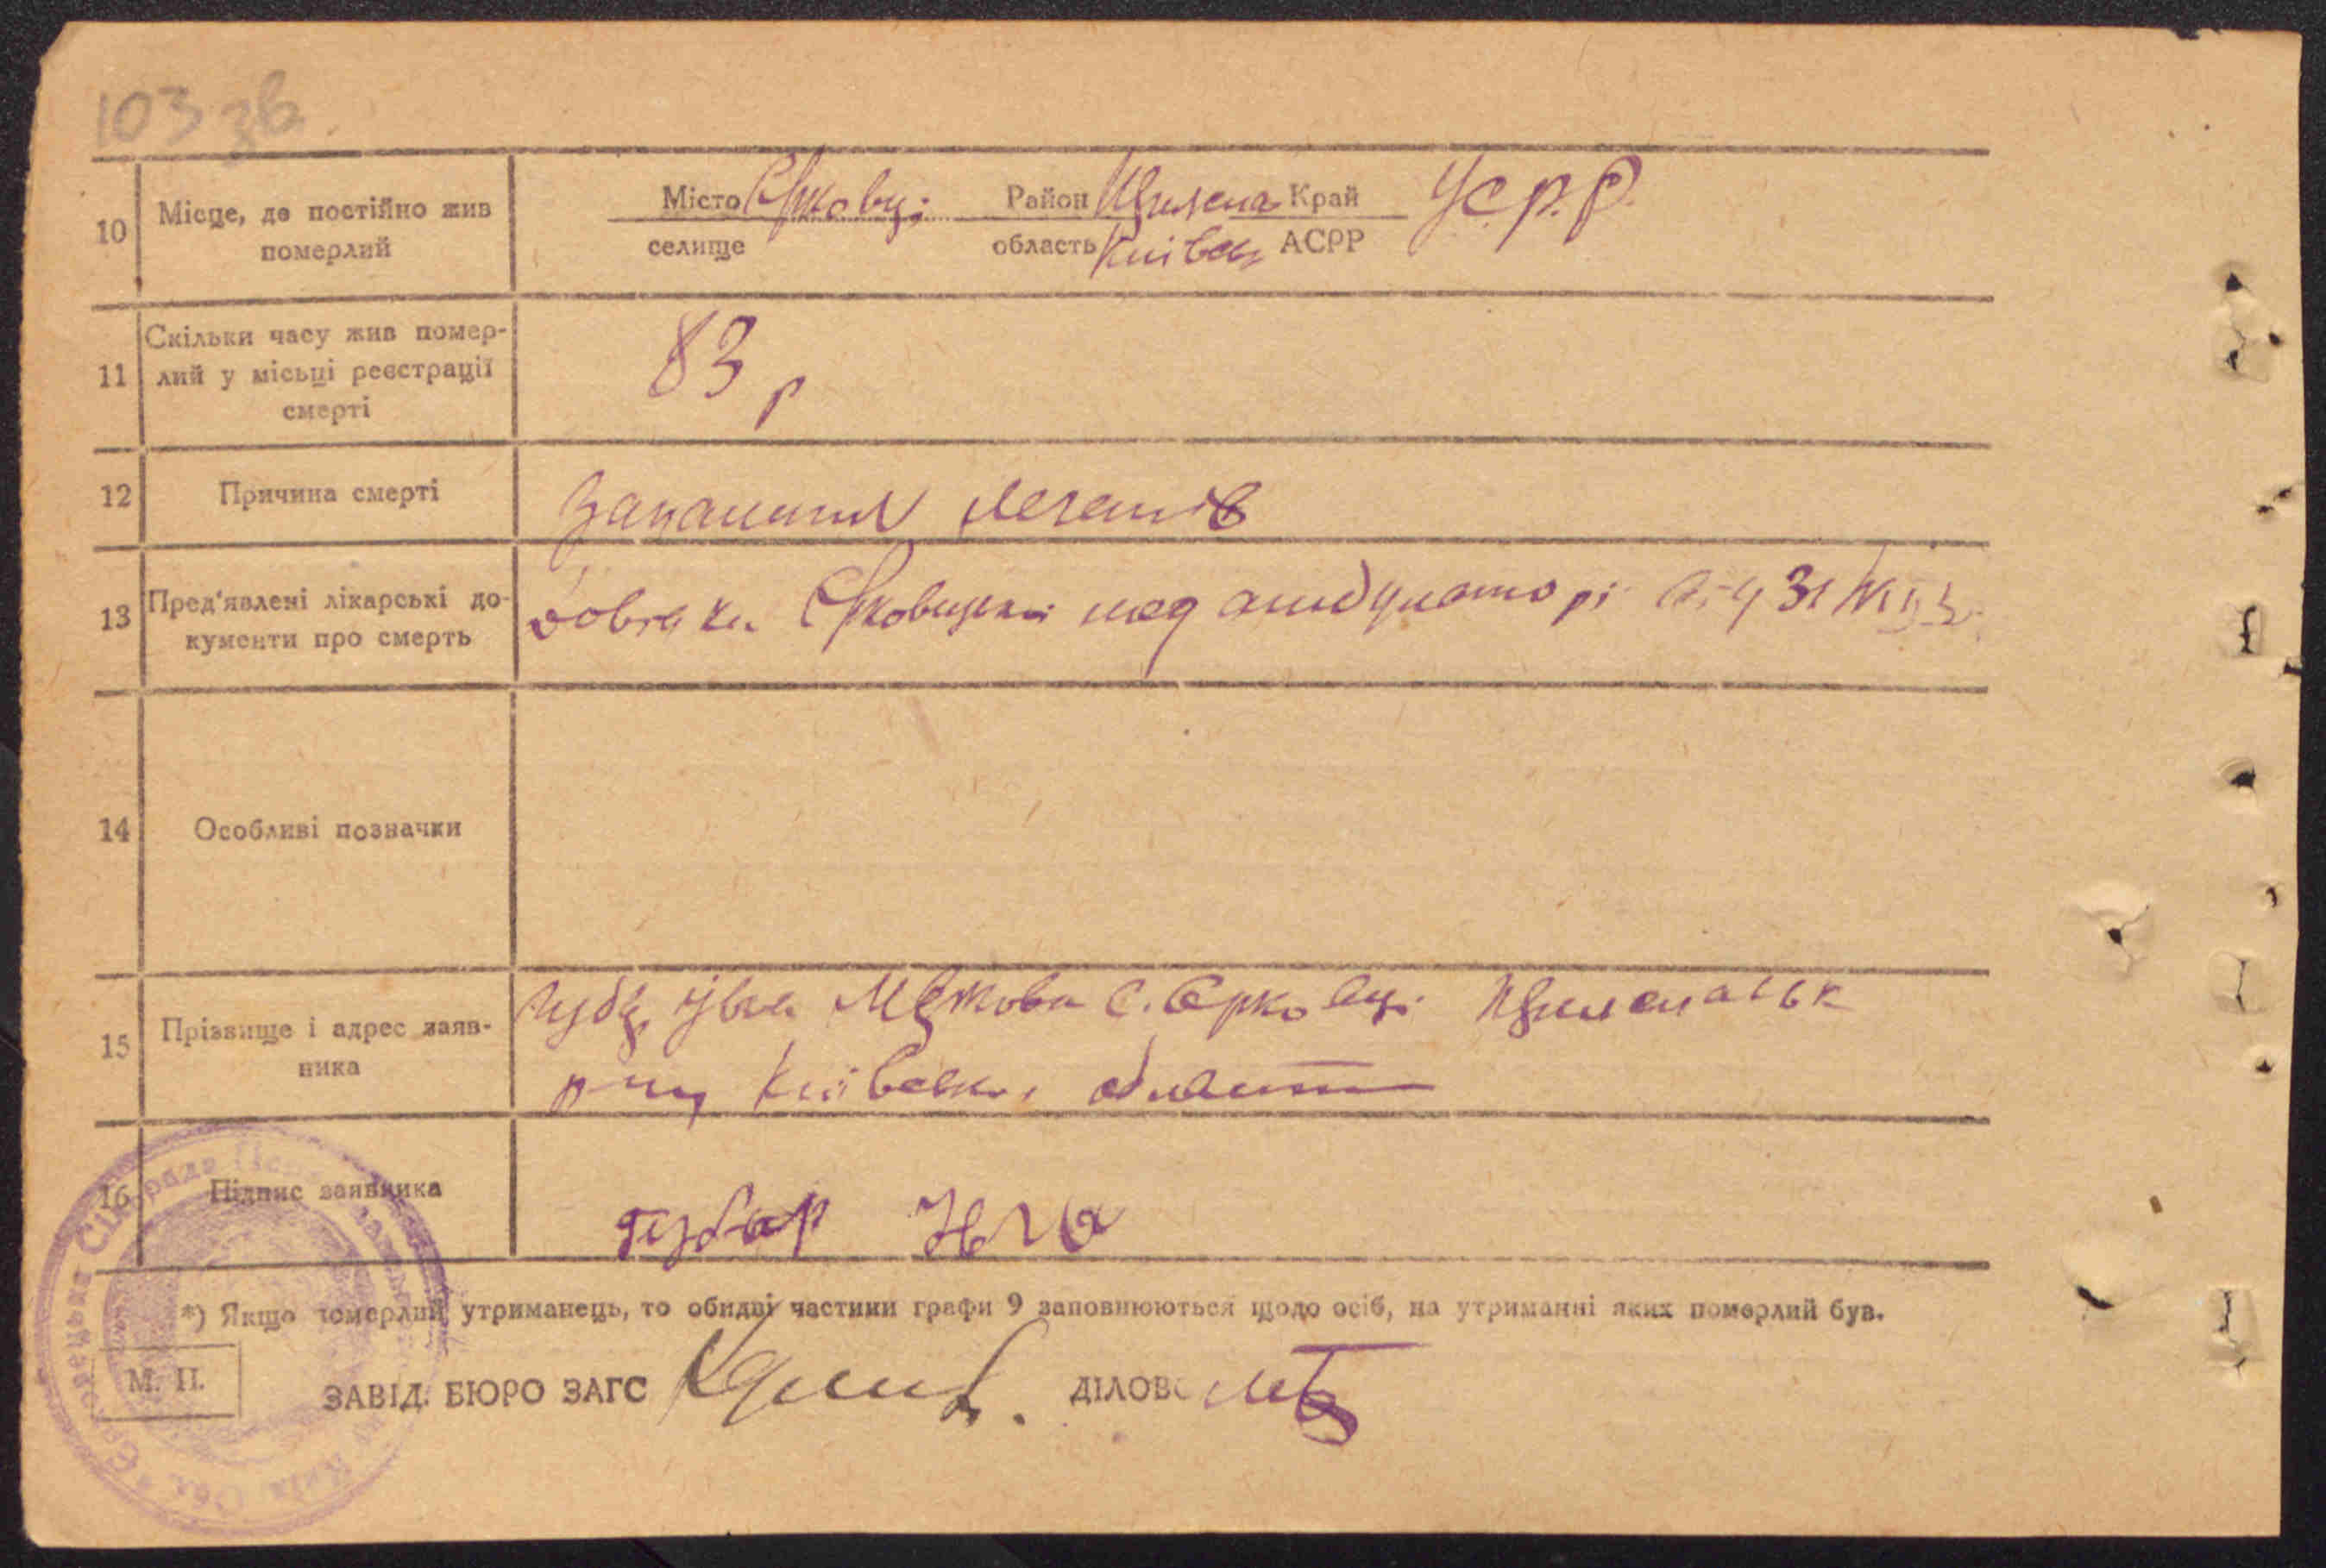 103 зв.
10 Місце, де постійно жив
померлий
Місто Єрковці Район Край УСРР
селище область Київськ АСРР
11 Скільки часу жив помер-
лий у місьці реєстрації
смерті
83 р
12 Причина смерті
Запалення легенів
13 Пред'явлені лікарські до-
кументи про смерть
Довідка Єрковецької мед амбулаторі від 31/XII
14 Особливі позначки
15 Прізвище і адрес заяв-
ника
с. Єрковці
р-ну Київської области
16 Підпис заявника
губар
*) Якщо померлий утриманець, то обидві частини графи 9 заповнюються щодо осіб, на утриманні яких померлий був.
М. П.
ЗАВІД. БЮРО ЗАГС
ДІЛОВ